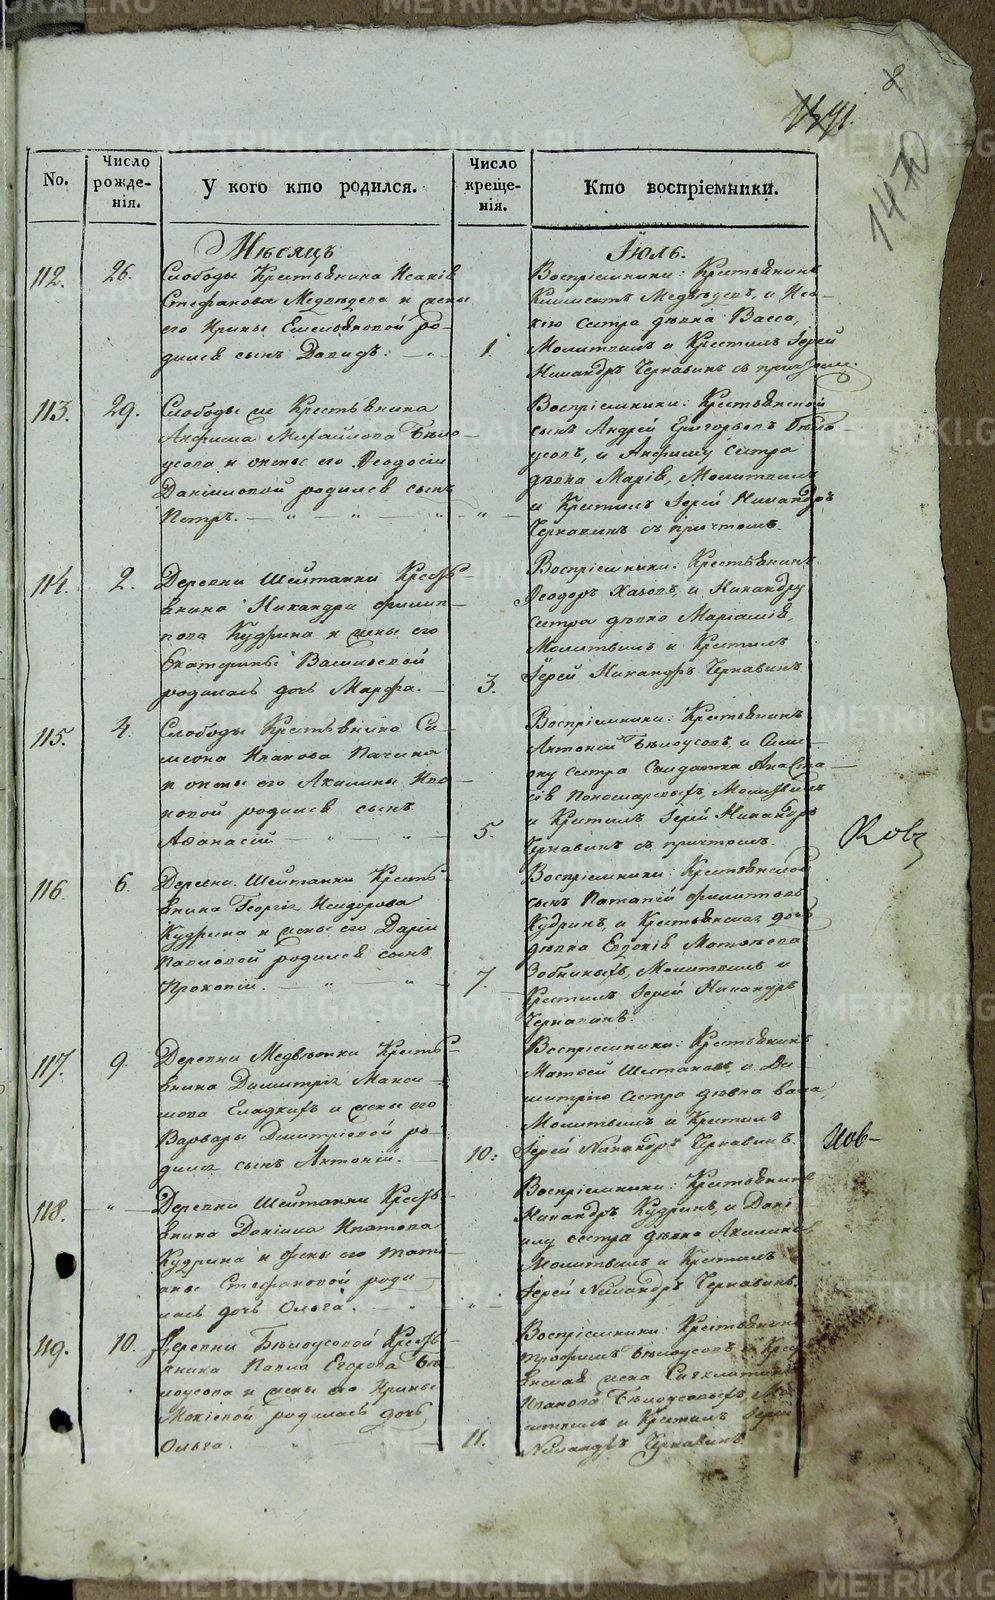 METRIKI.GASO-URAL.RU
No.
Число рожде-нія.
У кого кто родился.
Число креще-нія.
Кто воспріемники.
Мѣсяцъ
Іюль.
112.
26.
Слободы Крестьянина Исакія
Стефанова Медвѣдева и жены
его Ирины Емельяновой ро-
дился сынъ Давидъ. —
1.
Воспріемники: Крестьянинъ
Климентъ Медвѣдевъ, и Иса-
кію сестра дѣвка Васса,
Молитвилъ и Крестилъ Іерей
Никандръ Чернавинъ съ причтомъ.
113.
29.
Слободы Крестьянина
Анфима Михайлова Бѣло-
усова и жены его Ѳеодосіи
Даніиловой родился сынъ
Петръ. — " — " — "
"
Воспріемники: Крестьянской
сынъ Андрей Григорьевъ Бѣло-
усовъ, и Анфиму сестра
дѣвка Марія, Молитвилъ
и Крестилъ Іерей Никандръ
Чернавинъ съ причтомъ.
114.
2.
Деревни Шейтанки Кресть-
янина Никандра Филип-
пова Кудрина и жены его
Екатерины Васильевой
родилась дочь Марфа. —
3.
Воспріемники: Крестьянинъ
Ѳеодоръ и Никандру
сестра дѣвка Маріамія,
Молитвилъ и Крестилъ
Іерей Никандръ Чернавинъ
115.
4.
Слободы Крестьянина Си-
меона Иванова Пачина
и жены его Акилины Ива-
новой родился сынъ
Аѳанасій — " — " —
5.
Воспріемники: Крестьянинъ
Антоній Бѣлоусовъ, и Симе-
ону сестра Солдатка Анаста-
сія Пономаревыхъ, Молитвилъ
и Крестилъ Іерей Никандръ
Чернавинъ съ причтомъ.
116.
6.
Деревни Шейтанки Кресть-
янина Георгія Исидорова
Кудрина и жены его Даріи
Павловой родился сынъ
Прокопій. — " "
7.
Воспріемники: Крестьянской
сынъ Патапій Филиповъ
Кудринъ, и Крестьянская дочь
дѣвка Евдокія Матѳѣева
Зобниныхъ, Молитвилъ и
Крестилъ Іерей Никандръ
Чернавинъ.
117.
9.
Деревни Медвѣдки Кресть-
янина Димитрія Макси-
мова Сладкихъ и жены его
Варвары Дмитріевой ро-
дился сынъ Антоній. —
10:
Воспріемники: Крестьянинъ
Матѳей Шестаковъ, и Ди-
митрію сестра дѣвка
Молитвилъ и Крестилъ
Іерей Никандръ Чернавинъ.
118.
"
Деревни Шейтанки Кресть-
янина Даніила Ипатова
Кудрина и жены его Тать-
яны Стефановой роди-
лась дочь Ольга. — "
"
Воспріемники: Крестьянинъ
Никандръ Кудринъ, и Дані-
илу сестра дѣвка Акилина
Молитвилъ и Крестилъ
Іерей Никандръ Чернавинъ.
119.
10.
Деревни Бѣлоусовой Кресть-
янина Павла Егорова Бѣ-
лоусова и жены его Ирины
Мокіевой родилась дочь
Ольга. " —
11.
Воспріемники: Крестьянинъ
Трофимъ Бѣлоусовъ, и Крес-
янская жена
Иванова Бѣлоусовыхъ, Мо-
литвилъ и Крестилъ Іерей
Никандръ Чернавинъ